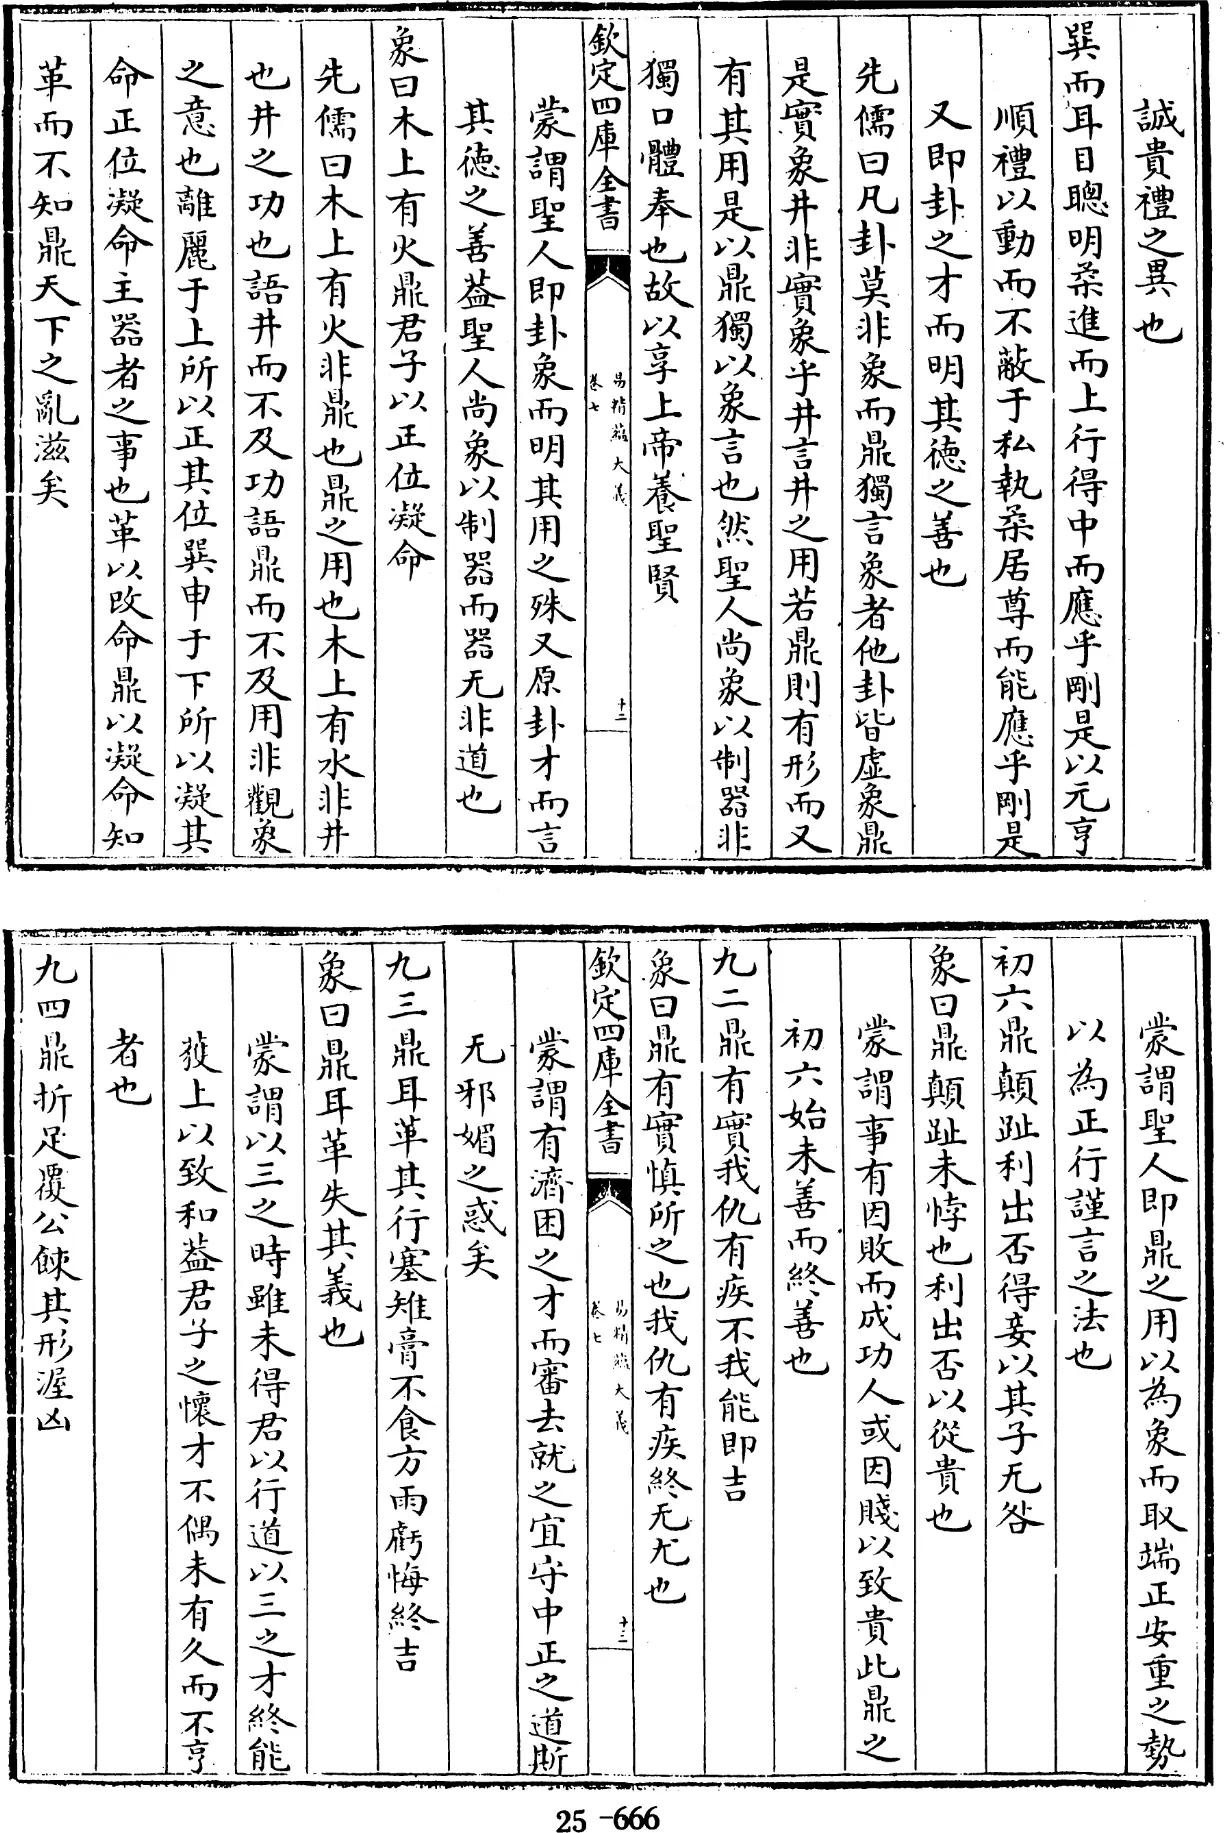 誠貴禮之異也
巽而耳目聰明柔進而上行得中而應乎剛是以元亨
順禮以動而不蔽于私執柔居尊而能應乎剛是
又即卦之才而明其德之善也
先儒曰凡卦莫非象而鼎獨言象者他卦皆虛象鼎
是實象井非實象乎井言井之用若鼎則有形而又
有其用是以鼎獨以象言也然聖人尚象以制器非
獨口體奉也故以享上帝養聖賢
欽定四庫全書
易精蘊大義
卷七
十二
蒙謂聖人即卦象而明其用之殊又原卦才而言
其德之善葢聖人尚象以制器而器无非道也
象曰木上有火鼎君子以正位凝命
先儒曰木上有火非鼎也鼎之用也木上有水非井
也井之功也語井而不及功語鼎而不及用非觀象
之意也離麗于上所以正其位巽申于下所以凝其
命正位凝命主器者之事也革以改命鼎以凝命知
革而不知鼎天下之亂滋矣
蒙謂聖人即鼎之用以為象而取端正安重之勢
以為正行謹言之法也
初六鼎顛趾利出否得妾以其子无咎
象曰鼎顛趾未悖也利出否以從貴也
蒙謂事有因敗而成功人或因賤以致貴此鼎之
初六始未善而終善也
九二鼎有實我仇有疾不我能即吉
象曰鼎有實慎所之也我仇有疾終无尤也
欽定四庫全書
易精蘊大義
卷七
十三
蒙謂有濟困之才而審去就之宜守中正之道斯
无邪媚之惑矣
九三鼎耳革其行塞雉膏不食方雨虧悔終吉
象曰鼎耳革失其義也
蒙謂以三之時雖未得君以行道以三之才終能
獲上以致和葢君子之懷才不偶未有久而不亨
者也
九四鼎折足覆公餗其形渥凶
25-666